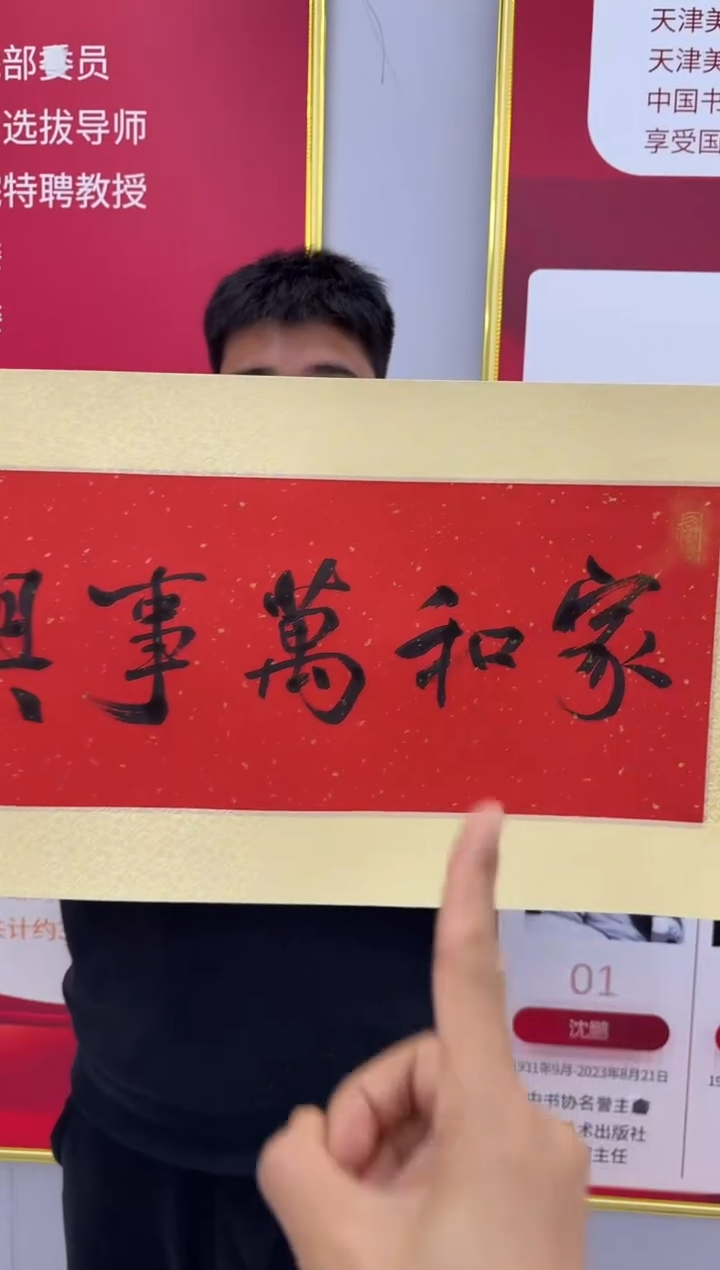 部委员
选拔导师
特聘教授
天津美
天津美
中国书
享受国
家和萬事興
计约
01
沈鹏
1931年9月-2023年8月21日
中书协名誉主
术出版社
主任